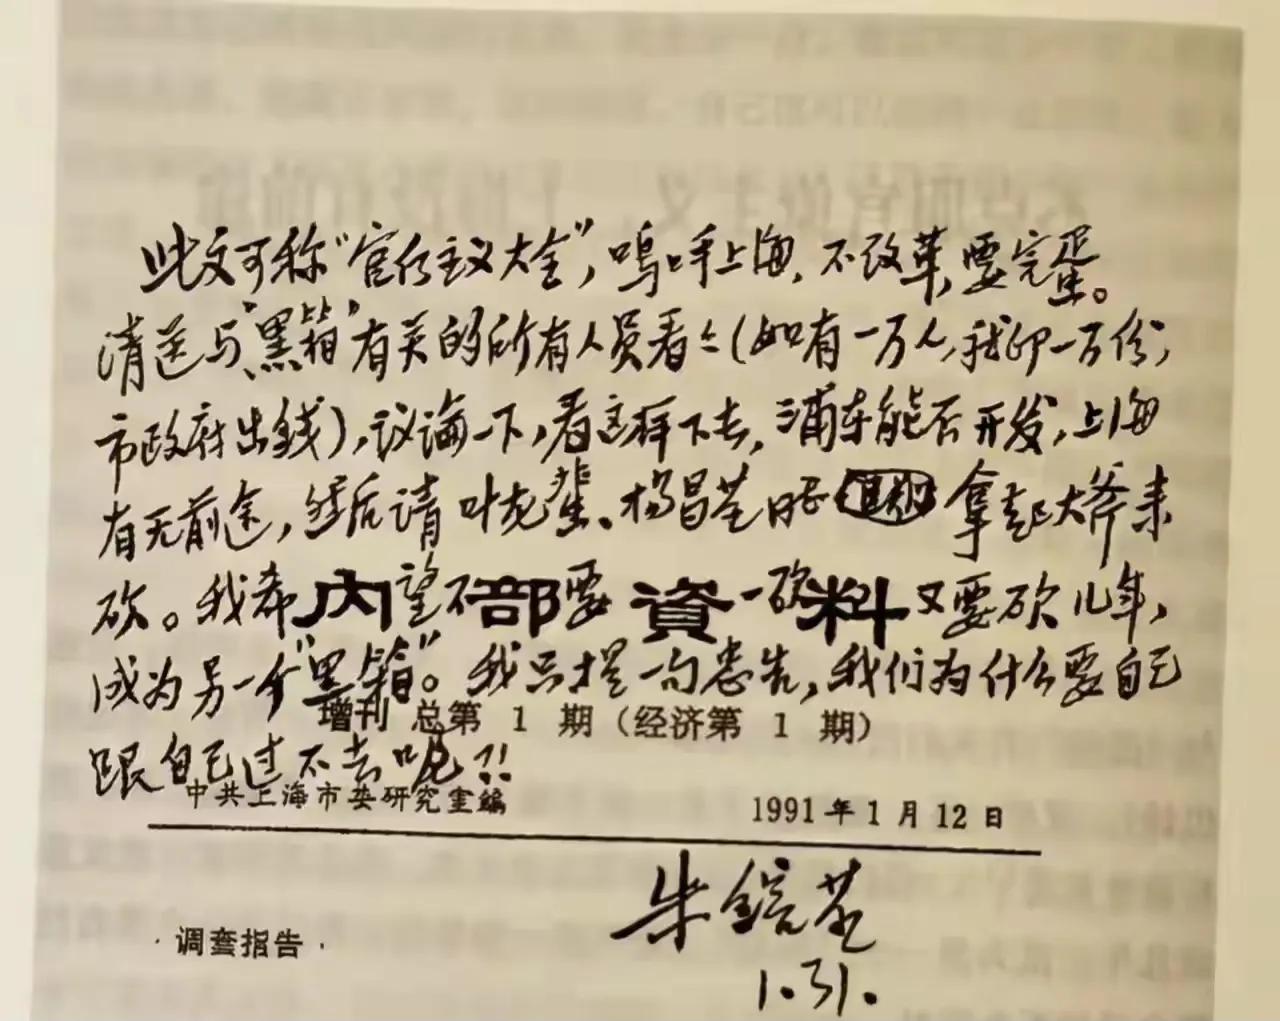 此文可称“官僚主义大全”，呜呼上海，不改革，要完蛋。
请送与“黑箱”有关的所有人员看看（如有一万人，我印一万份，
市政府出钱），议论一下，看这样下去，浦东能否开发，上海
有无前途，然后请叶龙蜚、杨昌基同志 拿起大斧来
砍。我希望不要一砍又要砍几年，
内部資料
成为另一个“黑箱”。我只提一句忠告，我们为什么要自己
增刊 总第 1 期（经济第 1 期）
跟自己过不去呢？！
中共上海市委研究室编 1991年1月12日
朱镕基
1.31.
·调查报告·